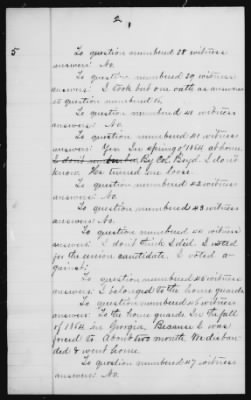 2
5
To question numbered 38 witness
answers: No.
To question numbered 39 witness
answers: I took but one oath as answered
to question numbered 16.
To question numbered 40 witness
answers: No.
To question numbered 41 witness
answers: Yes. In spring of 1864 at home
I don't remember By Col. Boyd. I don't
know. He turned me loose.
To question numbered 42 witness
answers: No.
To question numbered 43 witness
answers: No.
To question numbered 44 witness
answers: I don't think I did. I voted
for the union candidate. I voted a-
gainst.
To question numbered 45 witness
answers: I belonged to the home guards.
To question numbered 46 witness
answers: To the home guards In the fall
of 1864 in Georgia. Because I was
forced to About two months. We disban-
ded & went home.
To question numbered 47 witness
answers: No.